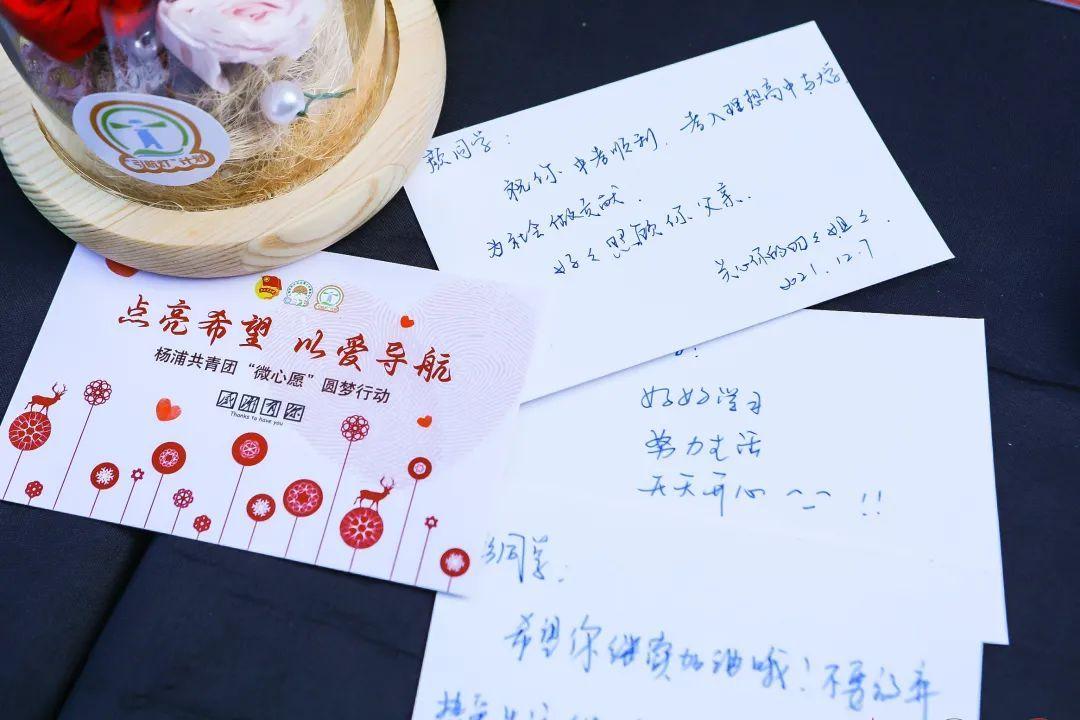 "引航灯"计划
顾同学：
祝你中考顺利，考入理想高中与大学
为社会做贡献．
好好照顾你父亲．
关心你的
2021.12.7
点亮希望 以爱导航
杨浦共青团“微心愿”圆梦行动
感谢有你
Thanks to have you
好好学习
努力生活
天天开心 ︿︿ !!
同学：
希望你继续加油哦！不要放弃